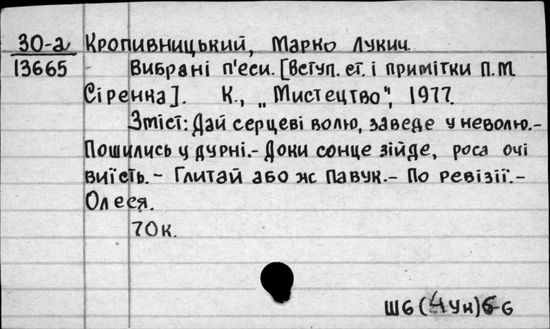 30-а Кропивницький, Марко Лукич
13665 Вибрані п'єси. [Вступ. ст. і примітки П.М.
Сіренка]. К., „Мистецтво", 1977.
Зміст: Дай серцеві волю, заведе у неволю.-
Пошились у дурні.- Доки сонце зійде, роса очі
виїсть.- Глитай або ж павук.- По ревізії.-
Олеся.
70к.
Ш6(4Ук)6-6